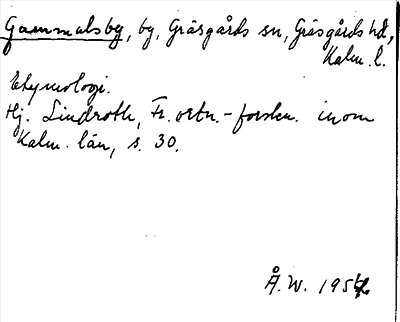 Gammalsby, by, Gräsgårds sn, Gräsgårds hd,
Kalm. l.
Etymologi.
Hj. Lindroth, Fr. ortn.-forskn. inom
Kalm. län, s. 30.
Å.W. 195